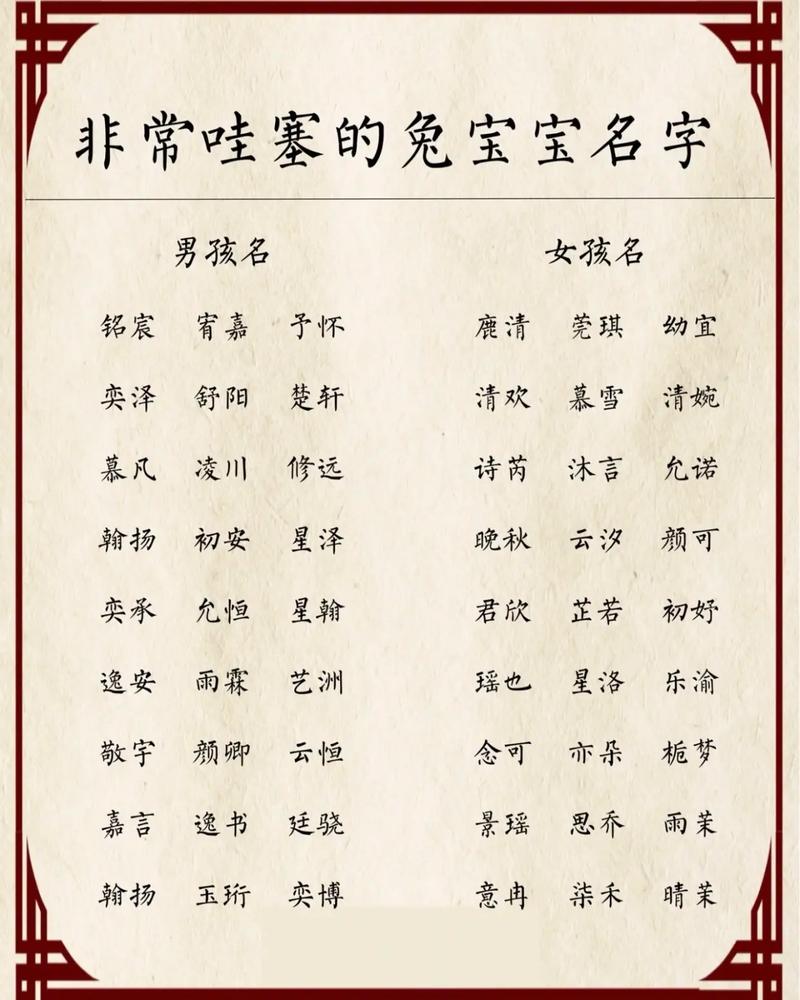 非常哇塞的兔宝宝名字
男孩名 女孩名
铭宸 宥嘉 予怀 鹿清 莞琪 幼宜
奕泽 舒阳 楚轩 清欢 慕雪 清婉
慕凡 凌川 修远 诗芮 沐言 允诺
翰扬 初安 星泽 晚秋 云汐 颜可
奕承 允恒 星翰 君欣 芷若 初妤
逸安 雨霖 艺洲 瑶也 星洛 乐渝
敬宇 颜卿 云恒 念可 亦朵 栀梦
嘉言 逸书 廷骁 景瑶 思乔 雨茉
翰扬 玉珩 奕博 意冉 柒禾 晴茉